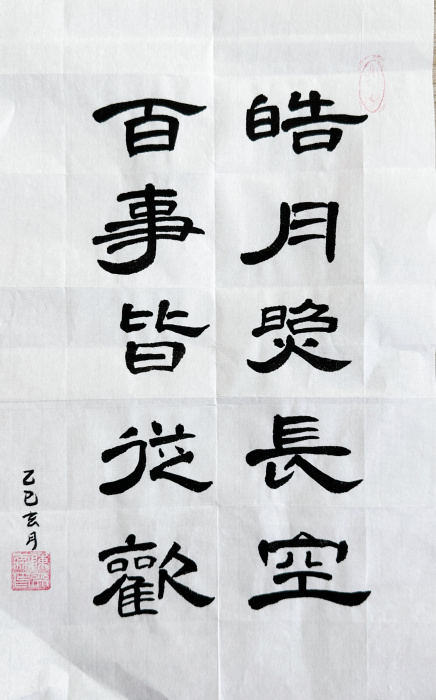 皓月照長空
百事皆從歡
乙巳玄月